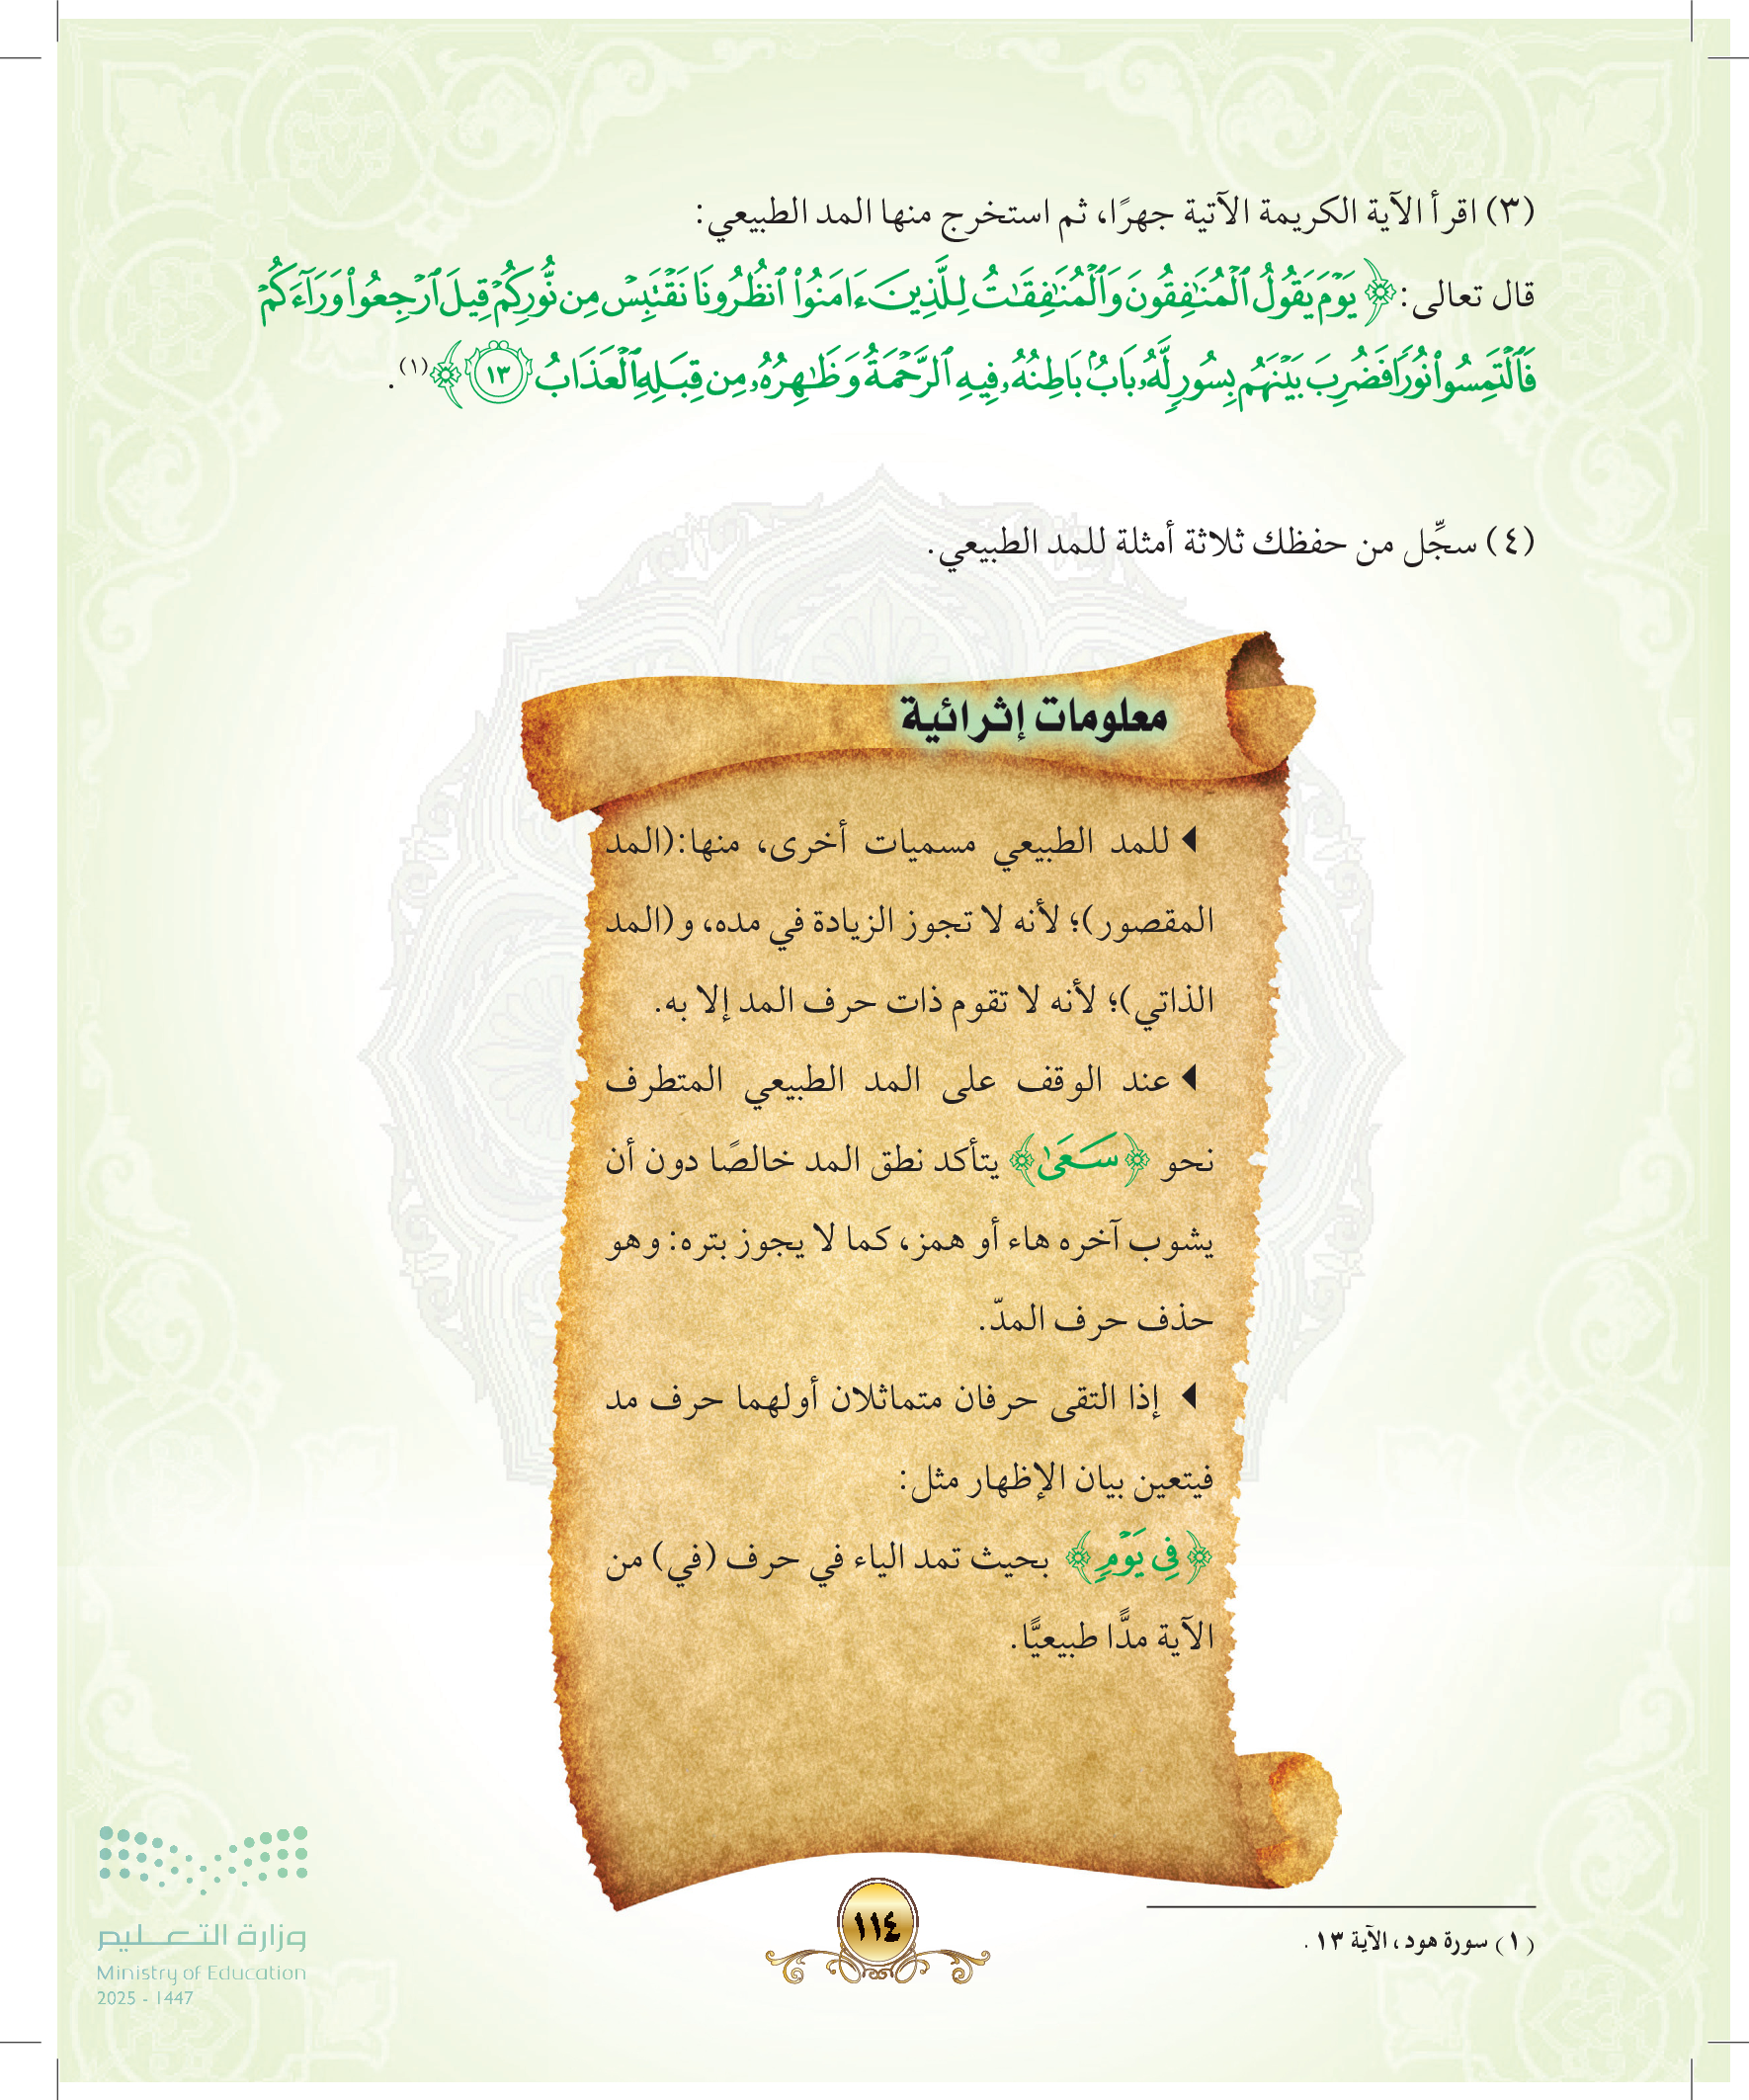 (٣) اقرأ الآية الكريمة الآتية جهرًا، ثم استخرج منها المد الطبيعي:
قال تعالى: ﴿يَوۡمَ يَقُولُ ٱلۡمُنَٰفِقُونَ وَٱلۡمُنَٰفِقَٰتُ لِلَّذِينَ ءَامَنُواْ ٱنظُرُونَا نَقۡتَبِسۡ مِن نُّورِكُمۡ قِيلَ ٱرۡجِعُواْ وَرَآءَكُمۡ
فَٱلۡتَمِسُواْ نُورٗاۖ فَضُرِبَ بَيۡنَهُم بِسُورٖ لَّهُۥ بَابُۢ بَاطِنُهُۥ فِيهِ ٱلرَّحۡمَةُ وَظَٰهِرُهُۥ مِن قِبَلِهِ ٱلۡعَذَابُ ١٣﴾(١).
(٤) سجِّل من حفظك ثلاثة أمثلة للمد الطبيعي.
معلومات إثرائية
للمد الطبيعي مسميات أخرى، منها:(المد
المقصور)؛ لأنه لا تجوز الزيادة في مده، و(المد
الذاتي)؛ لأنه لا تقوم ذات حرف المد إلا به.
عند الوقف على المد الطبيعي المتطرف
نحو ﴿سَعَىٰ﴾ يتأكد نطق المد خالصًا دون أن
يشوب آخره هاء أو همز، كما لا يجوز بتره: وهو
حذف حرف المدّ.
إذا التقى حرفان متماثلان أولهما حرف مد
فيتعين بيان الإظهار مثل:
﴿فِي يَوۡمٖ﴾ بحيث تمد الياء في حرف (في) من
الآية مدًّا طبيعيًّا.
(١) سورة هود، الآية ١٣ .
١١٤
وزارة التعليم
Ministry of Education
2025 - 1447